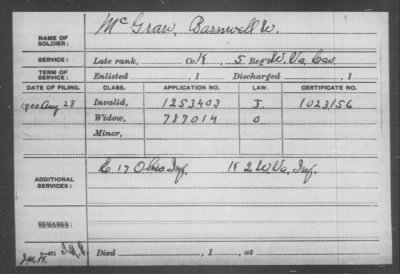 NAME OF SOLDIER: McGraw, Barnwell W.
SERVICE: Late rank, Co. K, 5 Reg't W. Va. Cav.
TERM OF SERVICE: Enlisted , 1 Discharged , 1
DATE OF FILING. CLASS. APPLICATION NO. LAW. CERTIFICATE NO.
1900 Aug 28 Invalid, 1253403 J. 1023156
Widow, 787014 O
Minor,
ADDITIONAL SERVICES: C 17 Ohio Inf. K 2 W Va, Inf.
REMARKS:
Died , 1 , at